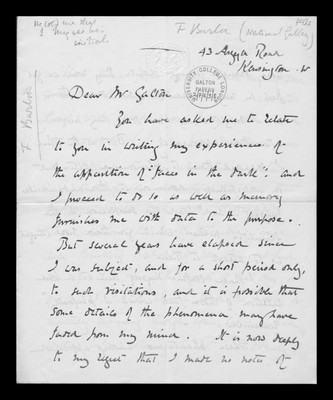 He told me that
I may use his
initial
F Burton (National Gallery)
F Burton
43 Argyll Road
Kensington. W
UNIVERSITY COLLEGE LONDON
GALTON
PAPERS
Dear Mr Galton
You have asked me to relate
to you in writing my experiences of
the apparition of "faces in the dark"; and
I proceed to do so as well as memory
furnishes me with data to the purpose.
But several years have elapsed since
I was subject, and for a short period only,
to such visitations, and it is possible that
some details of the phenomena may have
faded from my mind. It is now deeply
to my regret that I made no notes of